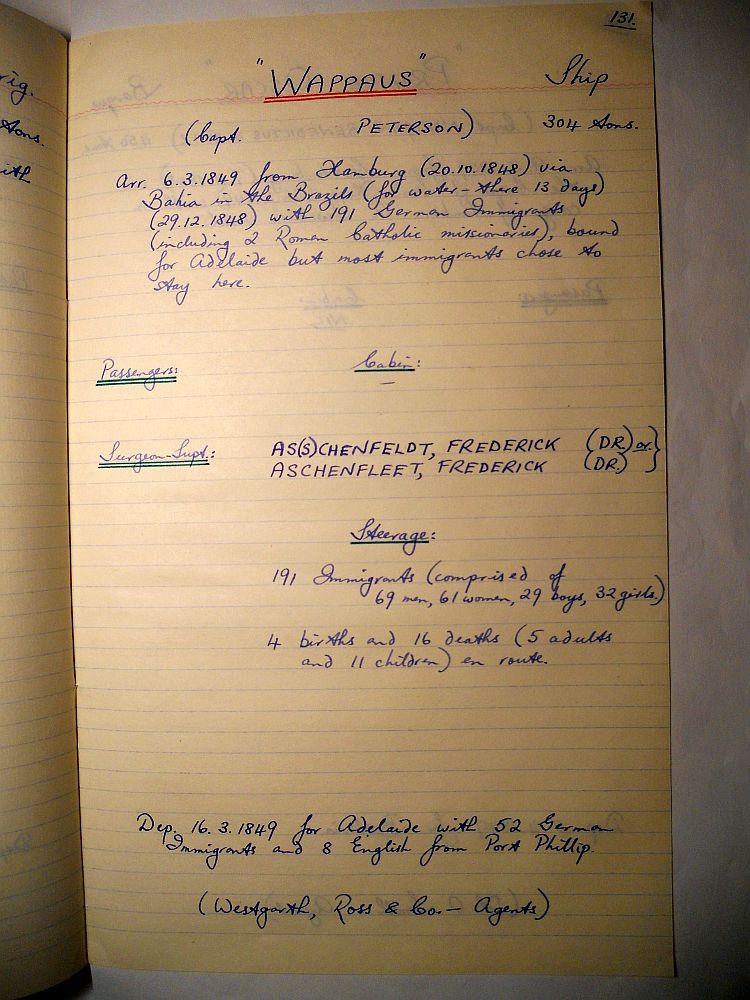 131.
"WAPPAUS" Ship
(Capt. PETERSON) 304 tons.
Arr. 6.3.1849 from Hamburg (20.10.1848) via
Bahia in the Brazils (for water - there 13 days)
(29.12.1848) with 191 German Immigrants
(including 2 Roman Catholic missionaries), bound
for Adelaide but most immigrants chose to
stay here.
Passengers: Cabin:
Surgeon-Supt.: AS(S)CHENFELDT, FREDERICK (DR.) or }
ASCHENFLEET, FREDERICK (DR.)
Steerage:
191 Immigrants (comprised of
69 men, 61 women, 29 boys, 32 girls.)
4 births and 16 deaths (5 adults
and 11 children) en route.
Dep. 16.3.1849 for Adelaide with 52 German
Immigrants and 8 English from Port Phillip.
(Westgarth, Ross & Co. - Agents)
rig.
tons.
ith